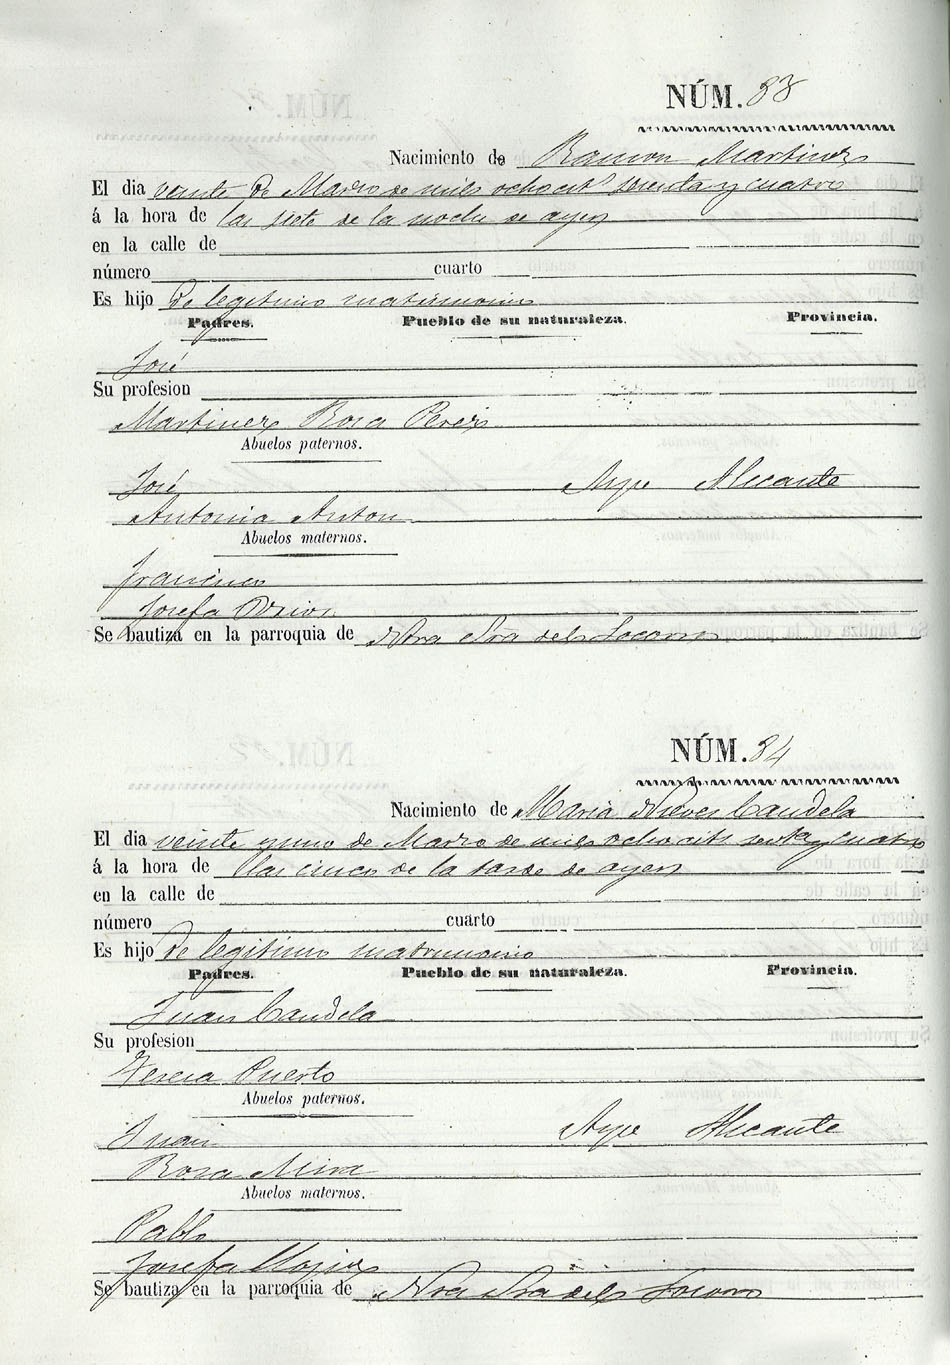 NÚM. 33
Nacimiento de Ramon Martinez
El dia veinte de Marzo de mil ochocits sesenta y cuatro
á la hora de las siete de la noche de ayer
en la calle de
número cuarto
Es hijo de legitimo matrimonio
Padres. Pueblo de su naturaleza. Provincia.
José
Su profesion
Martinez Rosa Perez
Abuelos paternos.
José Aspe Alicante
Antonia Anton
Abuelos maternos.
Francisco
Josefa
Se bautiza en la parroquia de Ntra Sra del Socorro
NÚM. 34
Nacimiento de Maria Nieves Candela
El dia veinte y uno de Marzo de mil ochocits sesenta y cuatro
á la hora de las cinco de la tarde de ayer
en la calle de
número cuarto
Es hijo de legitimo matrimonio
Padres. Pueblo de su naturaleza. Provincia.
Juan Candela
Su profesion
Teresa Puerto
Abuelos paternos.
Juan Aspe Alicante
Rosa Mira
Abuelos maternos.
Pablo
Josefa
Se bautiza en la parroquia de Ntra Sra del Socorro